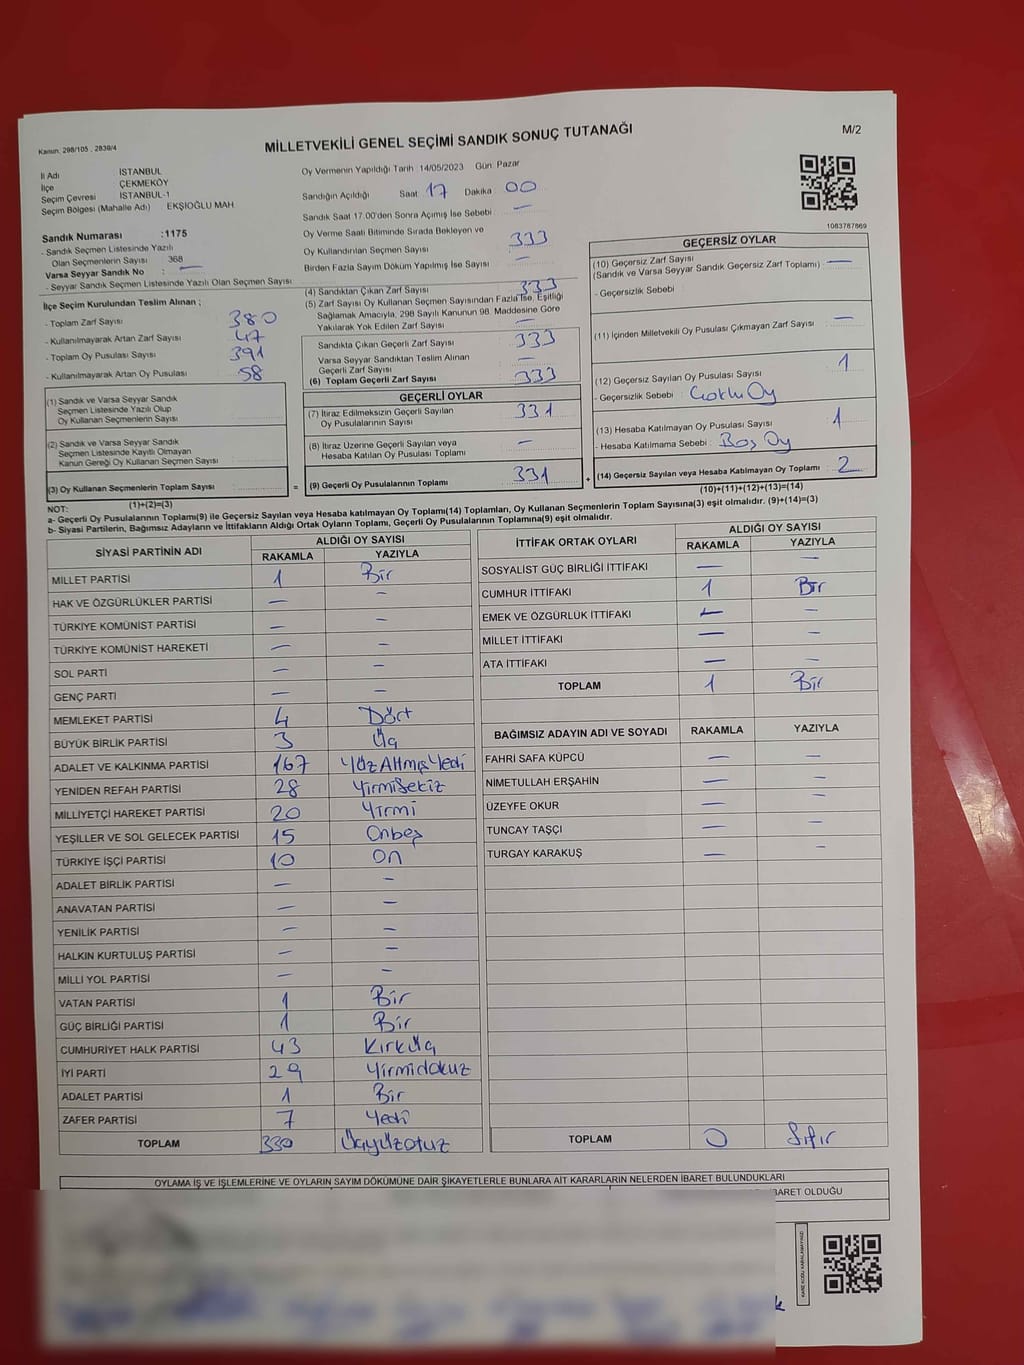 Kanun: 298/105 , 2839/4
MİLLETVEKİLİ GENEL SEÇİMİ SANDIK SONUÇ TUTANAĞI
M/2
İl Adı İSTANBUL
İlçe ÇEKMEKÖY
Seçim Çevresi İSTANBUL-1
Seçim Bölgesi (Mahalle Adı) EKŞİOĞLU MAH.
Sandık Numarası :1175
- Sandık Seçmen Listesinde Yazılı
Olan Seçmenlerin Sayısı 368
Varsa Seyyar Sandık No : —
- Seyyar Sandık Seçmen Listesinde Yazılı Olan Seçmen Sayısı
Oy Vermenin Yapıldığı Tarih 14/05/2023 Gün Pazar
Sandığın Açıldığı Saat 17 Dakika 00
Sandık Saat 17.00'den Sonra Açımış İse Sebebi —
Oy Verme Saati Bitiminde Sırada Bekleyen ve
Oy Kullandırılan Seçmen Sayısı 333
Birden Fazla Sayım Döküm Yapılmış İse Sayısı —
1083787869
İlçe Seçim Kurulundan Teslim Alınan ;
- Toplam Zarf Sayısı 380
- Kullanılmayarak Artan Zarf Sayısı 47
- Toplam Oy Pusulası Sayısı 391
- Kullanılmayarak Artan Oy Pusulası 58
(1) Sandık ve Varsa Seyyar Sandık
Seçmen Listesinde Yazılı Olup
Oy Kullanan Seçmenlerin Sayısı
(2) Sandık ve Varsa Seyyar Sandık
Seçmen Listesinde Kayıtlı Olmayan
Kanun Gereği Oy Kullanan Seçmen Sayısı
(3) Oy Kullanan Seçmenlerin Toplam Sayısı
(1)+(2)=(3)
(4) Sandıktan Çıkan Zarf Sayısı 333
(5) Zarf Sayısı Oy Kullanan Seçmen Sayısından Fazla İse, Eşitliği
Sağlamak Amacıyla, 298 Sayılı Kanunun 98. Maddesine Göre
Yakılarak Yok Edilen Zarf Sayısı —
Sandıkta Çıkan Geçerli Zarf Sayısı 333
Varsa Seyyar Sandıktan Teslim Alınan
Geçerli Zarf Sayısı —
(6) Toplam Geçerli Zarf Sayısı 333
GEÇERLİ OYLAR
(7) İtiraz Edilmeksizin Geçerli Sayılan
Oy Pusulalarının Sayısı 331
(8) İtiraz Üzerine Geçerli Sayılan veya
Hesaba Katılan Oy Pusulası Toplamı —
= (9) Geçerli Oy Pusulalarının Toplamı 331 +
GEÇERSİZ OYLAR
(10) Geçersiz Zarf Sayısı
(Sandık ve Varsa Seyyar Sandık Geçersiz Zarf Toplamı) —
- Geçersizlik Sebebi :
(11) İçinden Milletvekili Oy Pusulası Çıkmayan Zarf Sayısı —
(12) Geçersiz Sayılan Oy Pusulası Sayısı 1
- Geçersizlik Sebebi : Çoklu Oy
(13) Hesaba Katılmayan Oy Pusulası Sayısı 1
- Hesaba Katılmama Sebebi : Boş Oy
(14) Geçersiz Sayılan veya Hesaba Katılmayan Oy Toplamı : 2
(10)+(11)+(12)+(13)=(14)
NOT:
a- Geçerli Oy Pusulalarının Toplamı(9) ile Geçersiz Sayılan veya Hesaba katılmayan Oy Toplamı(14) Toplamları, Oy Kullanan Seçmenlerin Toplam Sayısına(3) eşit olmalıdır. (9)+(14)=(3)
b- Siyasi Partilerin, Bağımsız Adayların ve İttifakların Aldığı Ortak Oyların Toplamı, Geçerli Oy Pusulalarının Toplamına(9) eşit olmalıdır.
SİYASİ PARTİNİN ADI ALDIĞI OY SAYISI
RAKAMLA YAZIYLA
MİLLET PARTİSİ 1 Bir
HAK VE ÖZGÜRLÜKLER PARTİSİ — —
TÜRKİYE KOMÜNİST PARTİSİ — —
TÜRKİYE KOMÜNİST HAREKETİ — —
SOL PARTİ — —
GENÇ PARTİ — —
MEMLEKET PARTİSİ 4 Dört
BÜYÜK BİRLİK PARTİSİ 3 Üç
ADALET VE KALKINMA PARTİSİ 167 YüzAltmışYedi
YENİDEN REFAH PARTİSİ 28 YirmiSekiz
MİLLİYETÇİ HAREKET PARTİSİ 20 Yirmi
YEŞİLLER VE SOL GELECEK PARTİSİ 15 Onbeş
TÜRKİYE İŞÇİ PARTİSİ 10 On
ADALET BİRLİK PARTİSİ — —
ANAVATAN PARTİSİ — —
YENİLİK PARTİSİ — —
HALKIN KURTULUŞ PARTİSİ — —
MİLLİ YOL PARTİSİ — —
VATAN PARTİSİ 1 Bir
GÜÇ BİRLİĞİ PARTİSİ 1 Bir
CUMHURİYET HALK PARTİSİ 43 KırkÜç
İYİ PARTİ 29 Yirmidokuz
ADALET PARTİSİ 1 Bir
ZAFER PARTİSİ 7 Yedi
TOPLAM 330 ÜçyÜzotuz
İTTİFAK ORTAK OYLARI ALDIĞI OY SAYISI
RAKAMLA YAZIYLA
SOSYALİST GÜÇ BİRLİĞİ İTTİFAKI — —
CUMHUR İTTİFAKI 1 Bir
EMEK VE ÖZGÜRLÜK İTTİFAKI — —
MİLLET İTTİFAKI — —
ATA İTTİFAKI — —
TOPLAM 1 Bir
BAĞIMSIZ ADAYIN ADI VE SOYADI RAKAMLA YAZIYLA
FAHRİ SAFA KÜPCÜ — —
NİMETULLAH ERŞAHİN — —
ÜZEYFE OKUR — —
TUNCAY TAŞÇI — —
TURGAY KARAKUŞ — —
TOPLAM 0 Sıfır
OYLAMA İŞ VE İŞLEMLERİNE VE OYLARIN SAYIM DÖKÜMÜNE DAİR ŞİKAYETLERLE BUNLARA AİT KARARLARIN NELERDEN İBARET BULUNDUKLARI
BARET OLDUĞU
KARE KODU KARALAMAYINIZ!